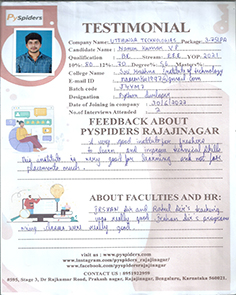 PySpiders
TESTIMONIAL
Company Name: UTTHUNGA TECHNOLOGIES Package: 3.75LPA
Candidate Name: Naveen Kumar V P
Qualification : BE Stream: EEE YOP: 2021
10%: 80 12%: 70 Degree%: Masters%:
College Name : Sai Vidya Institute of technology
E-mail ID :
Batch code :
Designation : Python developer
Date of Joining in company :
No.of Interviews Attended : 2
FEEDBACK ABOUT
PYSPIDERS RAJAJINAGAR
A very good institute for freshers
to learn and improve technical skills
This institute is very good for learning and not for
placements much.
ABOUT FACULTIES AND HR:
sir and sir's teaching
very really good. sir's program
classes were really good.
visit us : www.pyspiders.com
www.facebook.com/pyspiders_rajajinagar/
www.instagram.com/pyspiders_rajajinagar/
CONTACT US :
Stage 3, Dr Rajkumar Road, Prakash nagar, Rajajinagar, Bengaluru, Karnataka 560021.